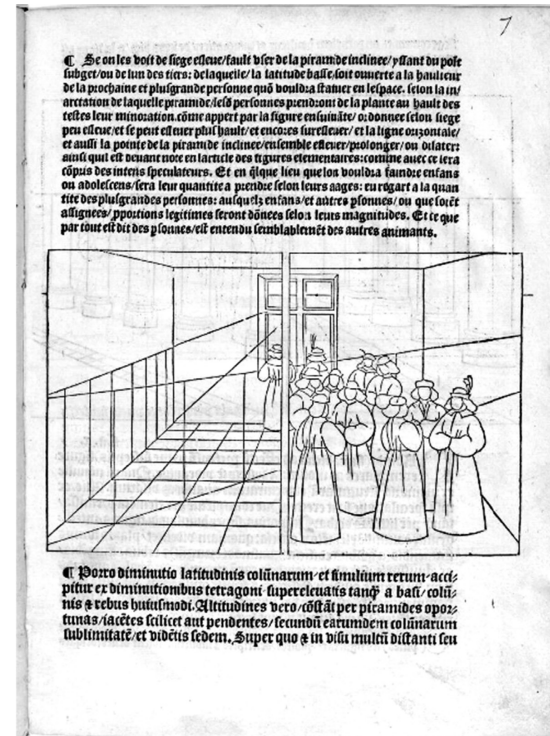 7
¶ Se on les voit de siege esleue/fault vser de la piramide inclinee/yssant du poīt
subget/ou de lun des tiers: de laquelle/la latitude basse/soit ouuerte a la haulteur
de la prochaine et plusgrande personne quō vouldra statuer en lespace. selon la in/
arctation de laquelle piramide/lesd personnes prendront de la plante au hault des
testes leur minoration. cōme appert par la figure ensuiuāte/ordonnee selon siege
peu esleue/et se peut esleuer plus hault/et encores suresleuer/et la ligne orizontale/
et aussi la pointe de la piramide inclinee/ensemble esleuer/prolonger/ou dilater:
ainsi quil est deuant note en larticle des figures elementaires: comme auec ce sera
cōpris des intens speculateurs. Et en qlque lieu que lon vouldra faindre enfans
ou adolescens/sera leur quantite a prendre selon leurs aages: eu regart a la quan
tite des plusgrandes personnes: ausquelz enfans/et autres psonnes/ou que soiēt
assignees/pportions legitimes seront dōnees selon leurs magnitudes. Et ce que
par tout est dit des psonnes/est entendu semblablemēt des autres animants.
¶ Porro diminutio latitudinis colūnarum/et similium rerum accī-
pitur ex diminutionibus tetragoni superelenatis tanq̄ a basi/colū-
nis ⁊ rebus huiusmodi. Altitudines vero/cōstāt per piramides opor-
tunas/iacētes scilicet aut pendentes/secundū earumdem colūnarum
sublimitatē/et vidētis sedem. Super quo ⁊ in visu multū distanti seu